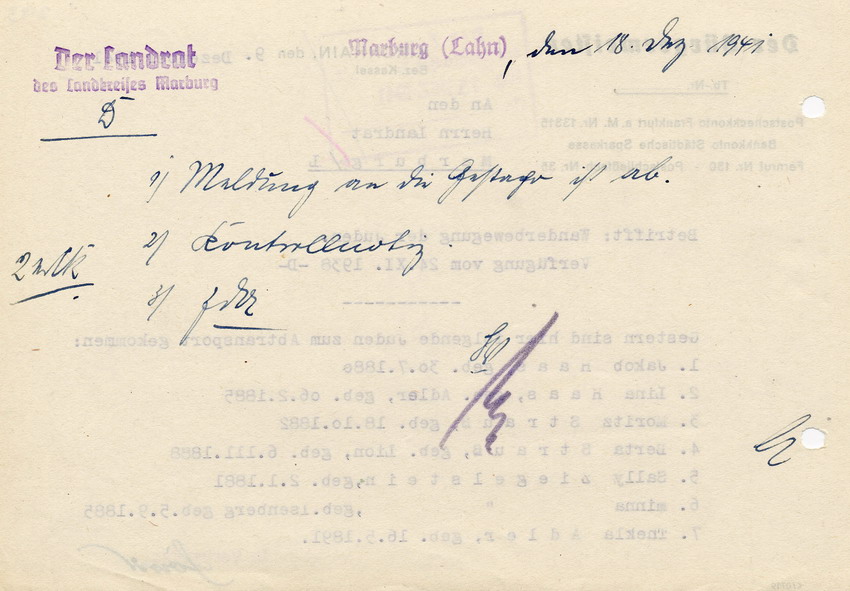 Der Landrat
des Landkreises Marburg
Marburg (Lahn), den 18. Dez 1941
D
1) Meldung an die Gestapo ist ab.
2) Kontrollnotiz.
3) z d A
Der
Tgb.-Nr.
Postscheckkonto Frankfurt a.M. Nr. 13815
Bankkonto Städtische Sparkasse
Fernruf Nr. 130 - Postschließfach Nr. 35
den 9. Deze
Bez. Kassel
An den
Herrn Landrat
M a r b u r g / L
Betrifft: Wanderbewegung der Juden
Verfügung vom 24.XI. 1938 -D-
------------
Gestern sind hier folgende Juden zum Abtransport gekommen:
1. Jakob H a a s geb. 30.7.1880
2. Lina H a a s, Adler, geb. 06.2.1885
3. Moritz S t r a u ß, geb. 18.10.1882
4. Berta S t r a u ß, geb. Lion, geb. 6.III.1888
5. Sally Z i e g e l s t e i n, geb. 2.1.1881
6. Minna " , geb. Isenberg geb. 5.9.1885
7. Thekla A d l e r, geb. 16.5.1891.